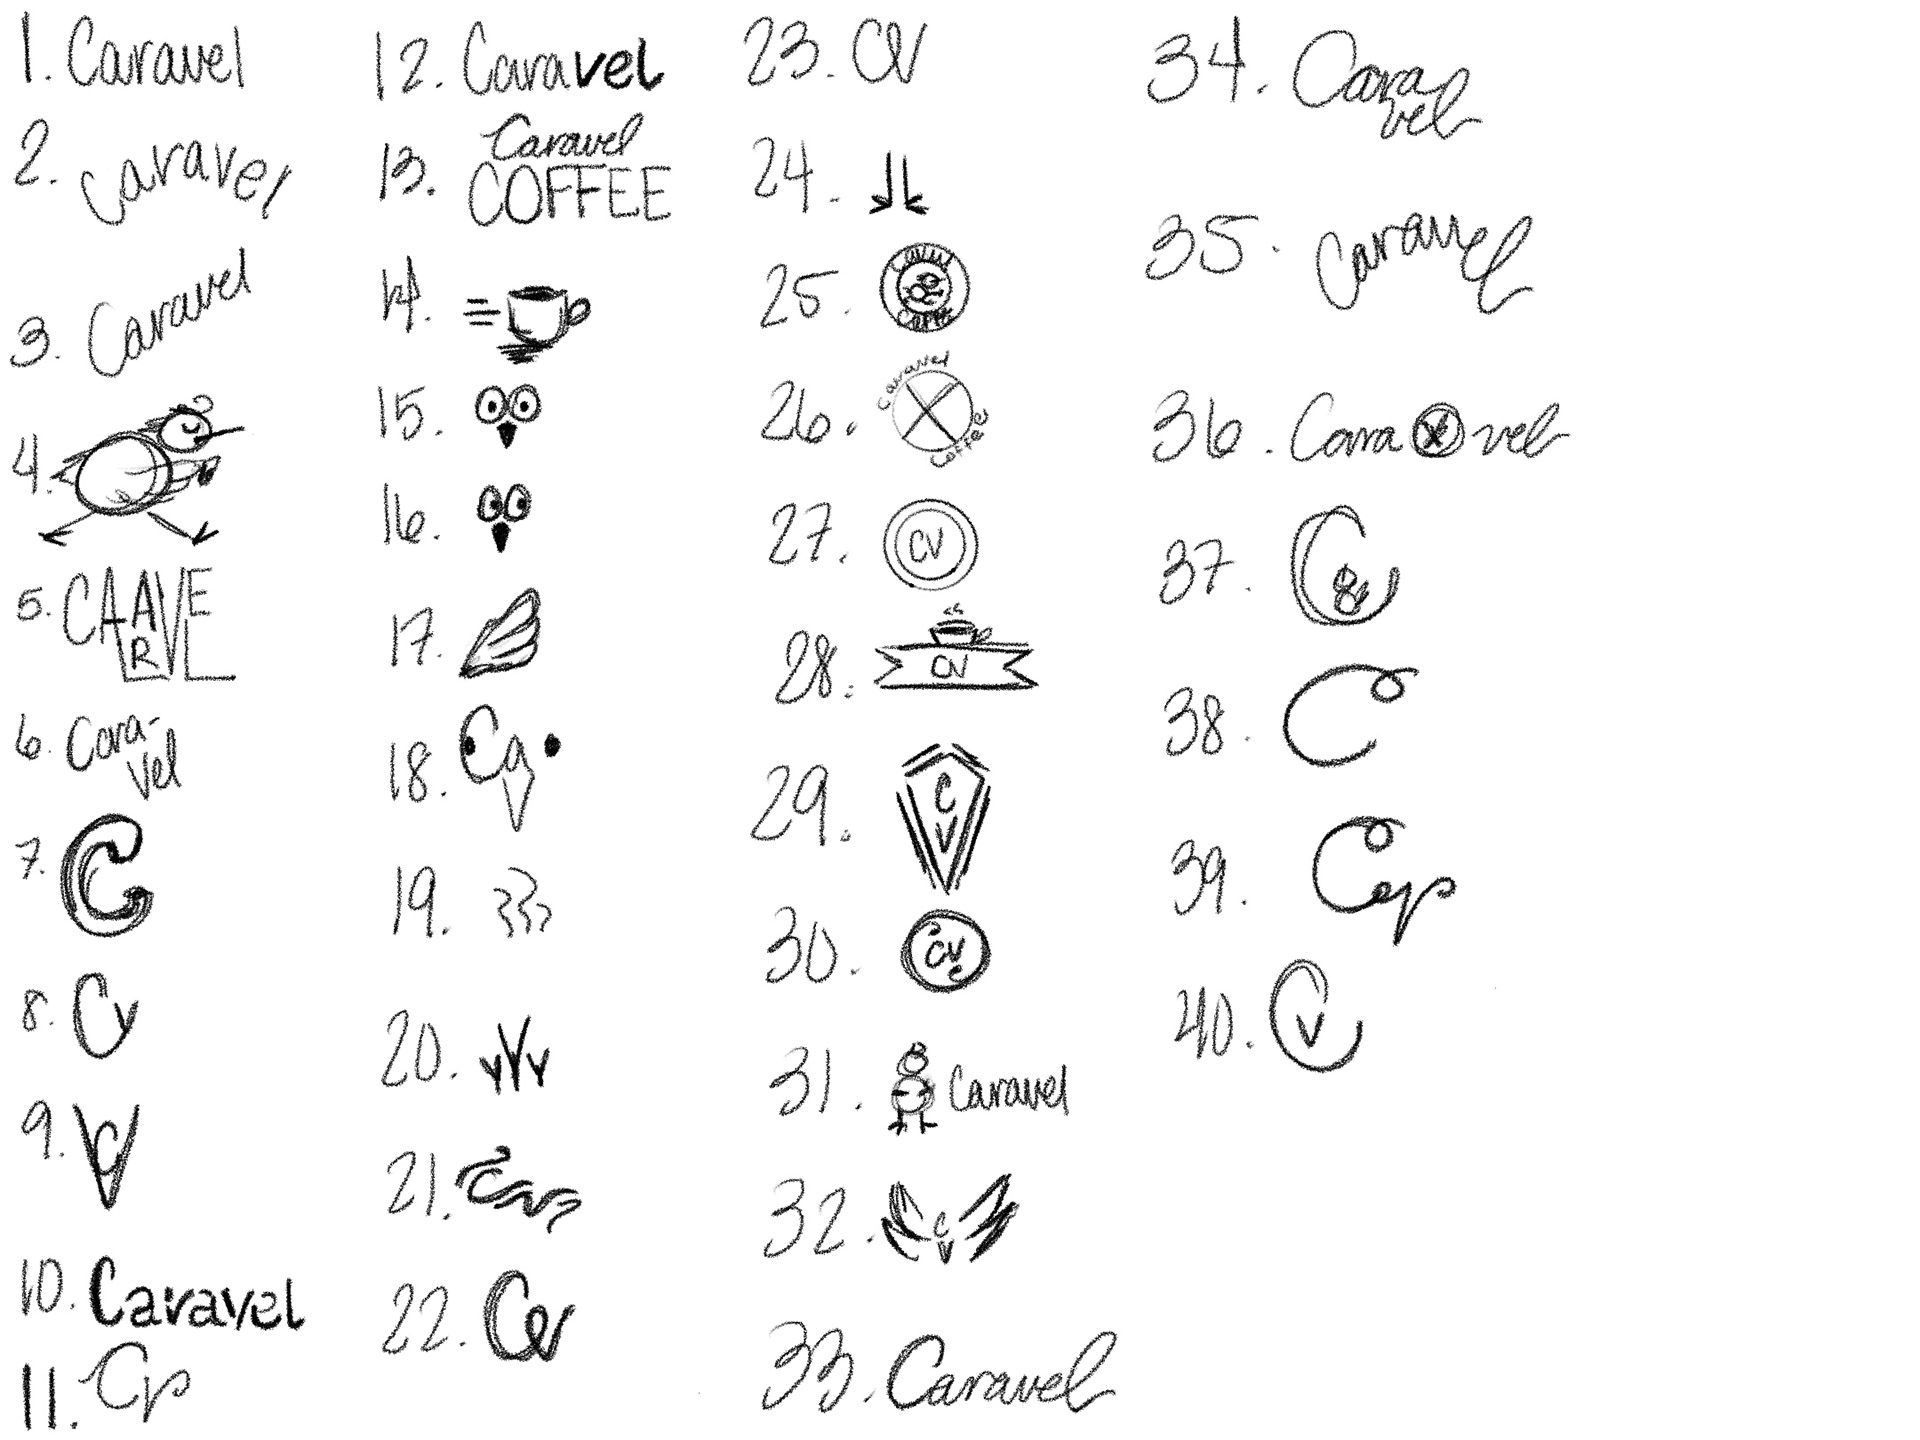 1. Caravel
2. Caravel
3. Caravel
4.
5. CARAVEL
6. Cara-
vel
7. C
8. Cv
9. CV
10. Caravel
11. Cv
12. Caravel
13. Caravel
COFFEE
14.
15.
16.
17.
18. Ca
19.
20.
21.
22. Cv
23. CV
24.
25.
26. Caravel
Coffee
27. CV
28. CV
29. C
V
30. CV
31. Caravel
32. C
V
33. Caravel
34. Cara
vel
35. Caravel
36. Cara vel
37. C
38. C
39.
40. Cv